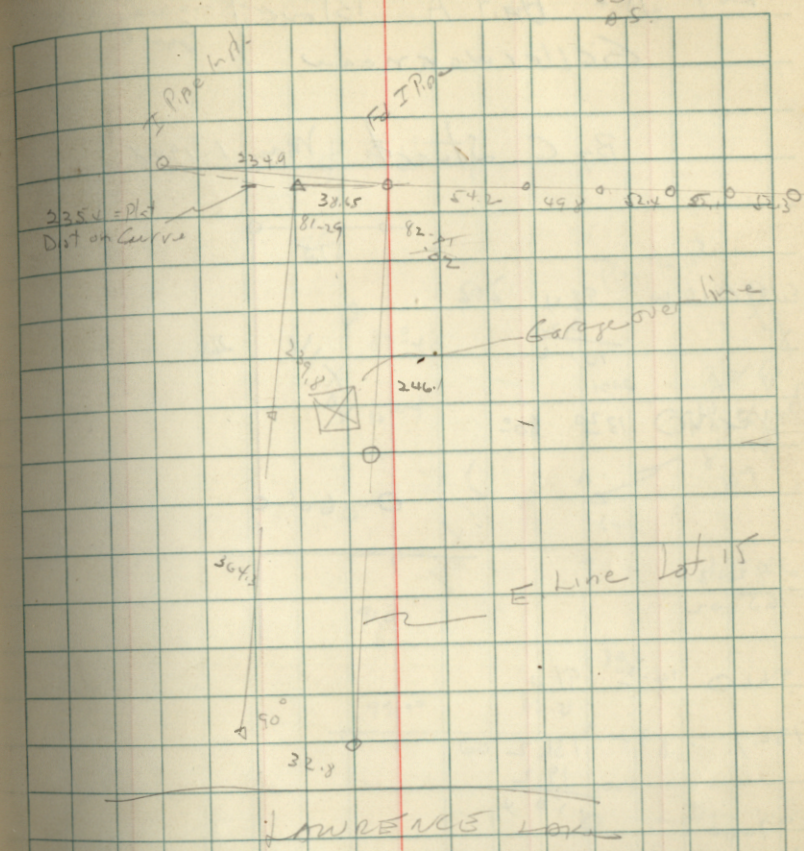 D.S.
I Pipe Inpl.
Fd I Pipe
234.9
38.65
54.2
49.8
52.4
52.1
52.3
235.4 = Plat
Dist on Curve
81-29
82-
Garage over line
239.8
246.1
364.3
E Line Lot 15
90°
32.8
LAWRENCE LAKE